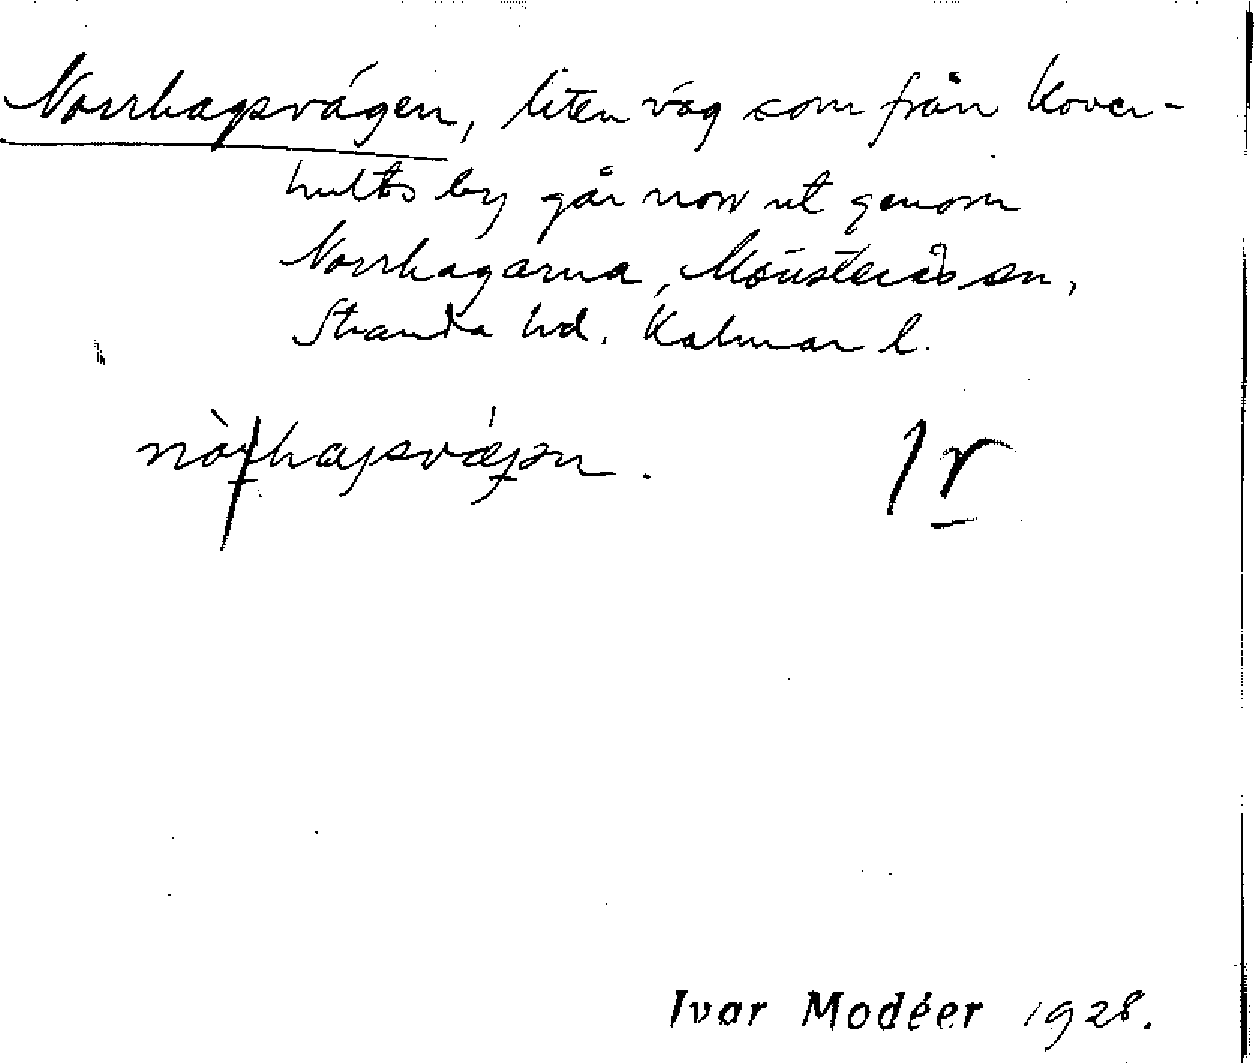 Norrhagsvägen, liten väg som från Kover-
hults by går norr ut genom
Norrhagarna, Mönsterås sn,
Stranda hd. Kalmar l.
Ivar Modéer 1928.